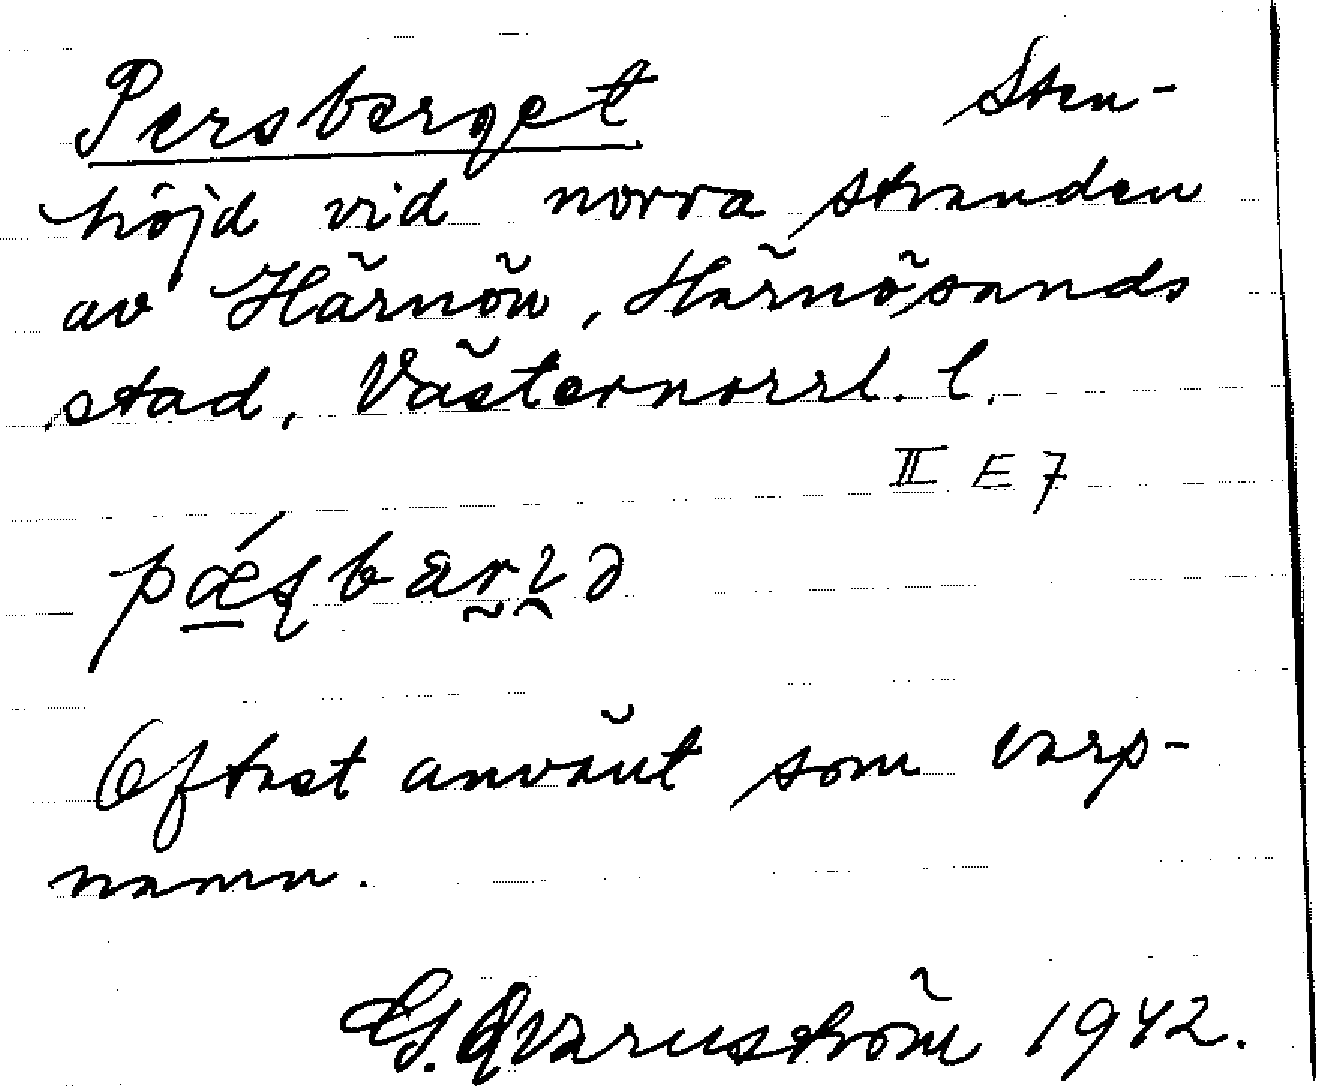 Persberget Sten-
höjd vid norra stranden
av Härnön, Härnösands
stad, Västernorrl. l.
II E 7
Oftast använt som varp-
namn.
G. Qvarnström 1942.